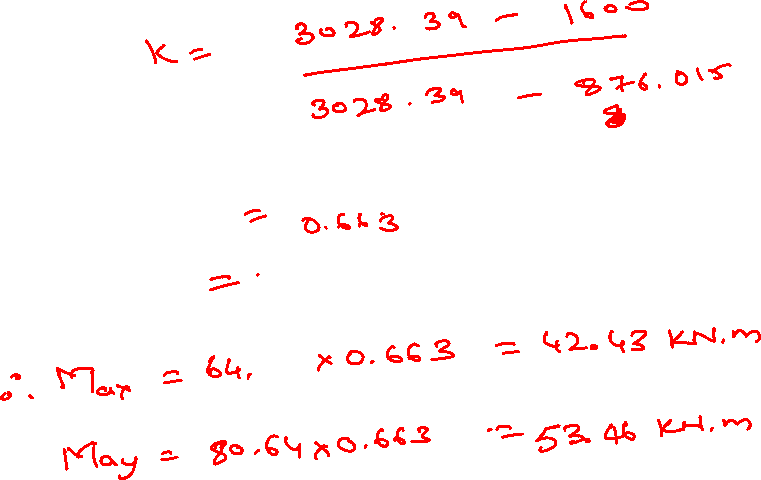 K = 3028.39 - 1600
3028.39 - 876.015
= 0.663
= .
∴ Max = 64. × 0.663 = 42.43 KN.m
May = 80.64 × 0.663 = 53.46 KN.m